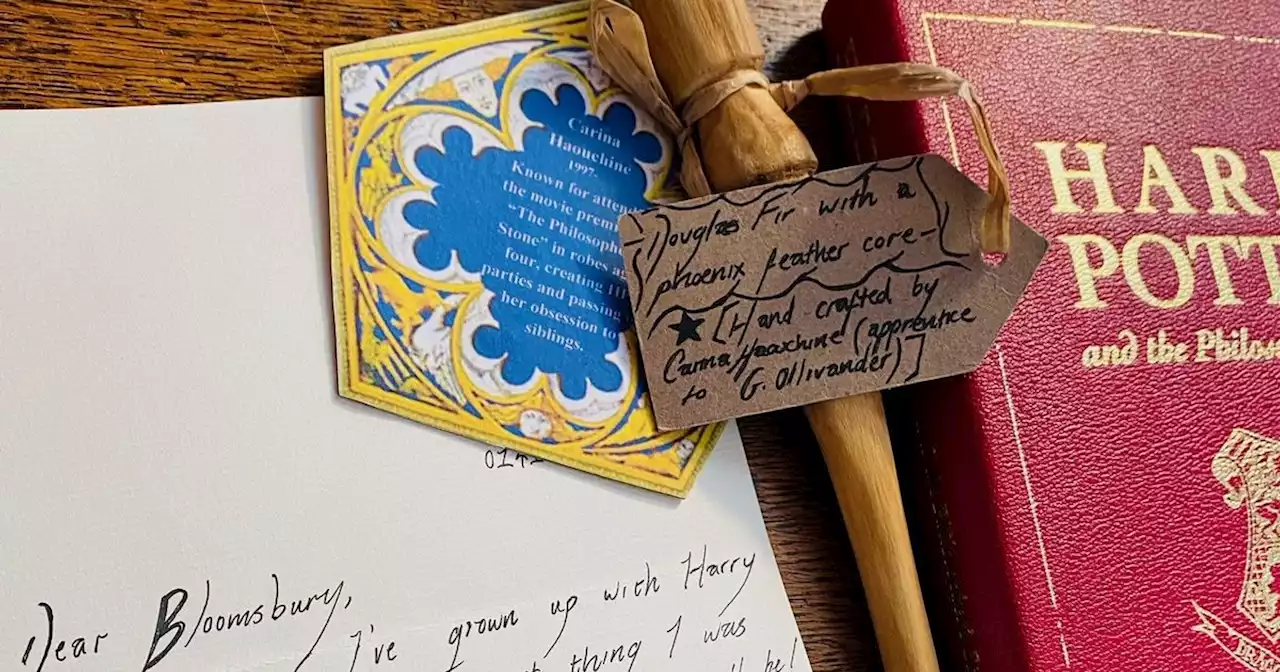 Carina
Haouchine
1997-
Known for atten
the movie premi
"The Philosoph
Stone" in robes ag
four, creating
parties and passing
her obsession to
siblings.
-Douglas Fir with a
phoenix feather core-
[Hand crafted by
Carina Haouchine (apprentice
to G. Ollivander)]
HAR
POTT
and the Philos
Dear Bloomsbury,
I've grown up with Harry
thing I was